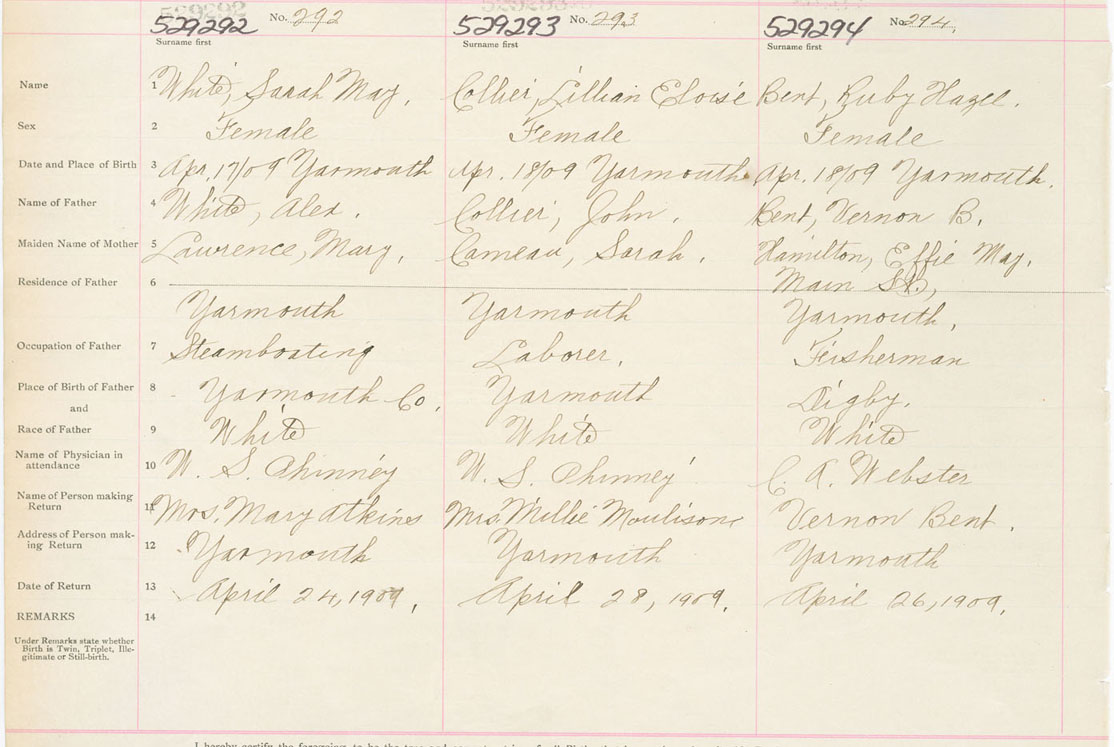 529292 No. 292 529293 No. 293 529294 No. 294
Surname first Surname first Surname first
Name 1 White, Sarah May, Collier, Lillian Eloise Bent, Ruby Hazel.
Sex 2 Female Female Female
Date and Place of Birth 3 Apr. 17/09 Yarmouth Apr. 18/09 Yarmouth. Apr. 18/09 Yarmouth.
Name of Father 4 White, Alex. Collier, John. Bent, Vernon B.
Maiden Name of Mother 5 Lawrence, Mary, Comeau, Sarah. Hamilton, Effie May.
Residence of Father 6 Main St.,
Yarmouth Yarmouth Yarmouth,
Occupation of Father 7 Steamboating Laborer, Fisherman
Place of Birth of Father 8 Yarmouth Co. Yarmouth Digby.
and
Race of Father 9 White White White
Name of Physician in
attendance 10 W. S. Phinney W. S. Phinney C. A. Webster
Name of Person making
Return 11 Mrs. Mary Atkines Mrs. Millie Moulisong Vernon Bent.
Address of Person mak-
ing Return 12 Yarmouth Yarmouth Yarmouth
Date of Return 13 April 24, 1909, April 28, 1909. April 26, 1909.
REMARKS 14
Under Remarks state whether
Birth is Twin, Triplet, Ille-
gitimate or Still-birth.